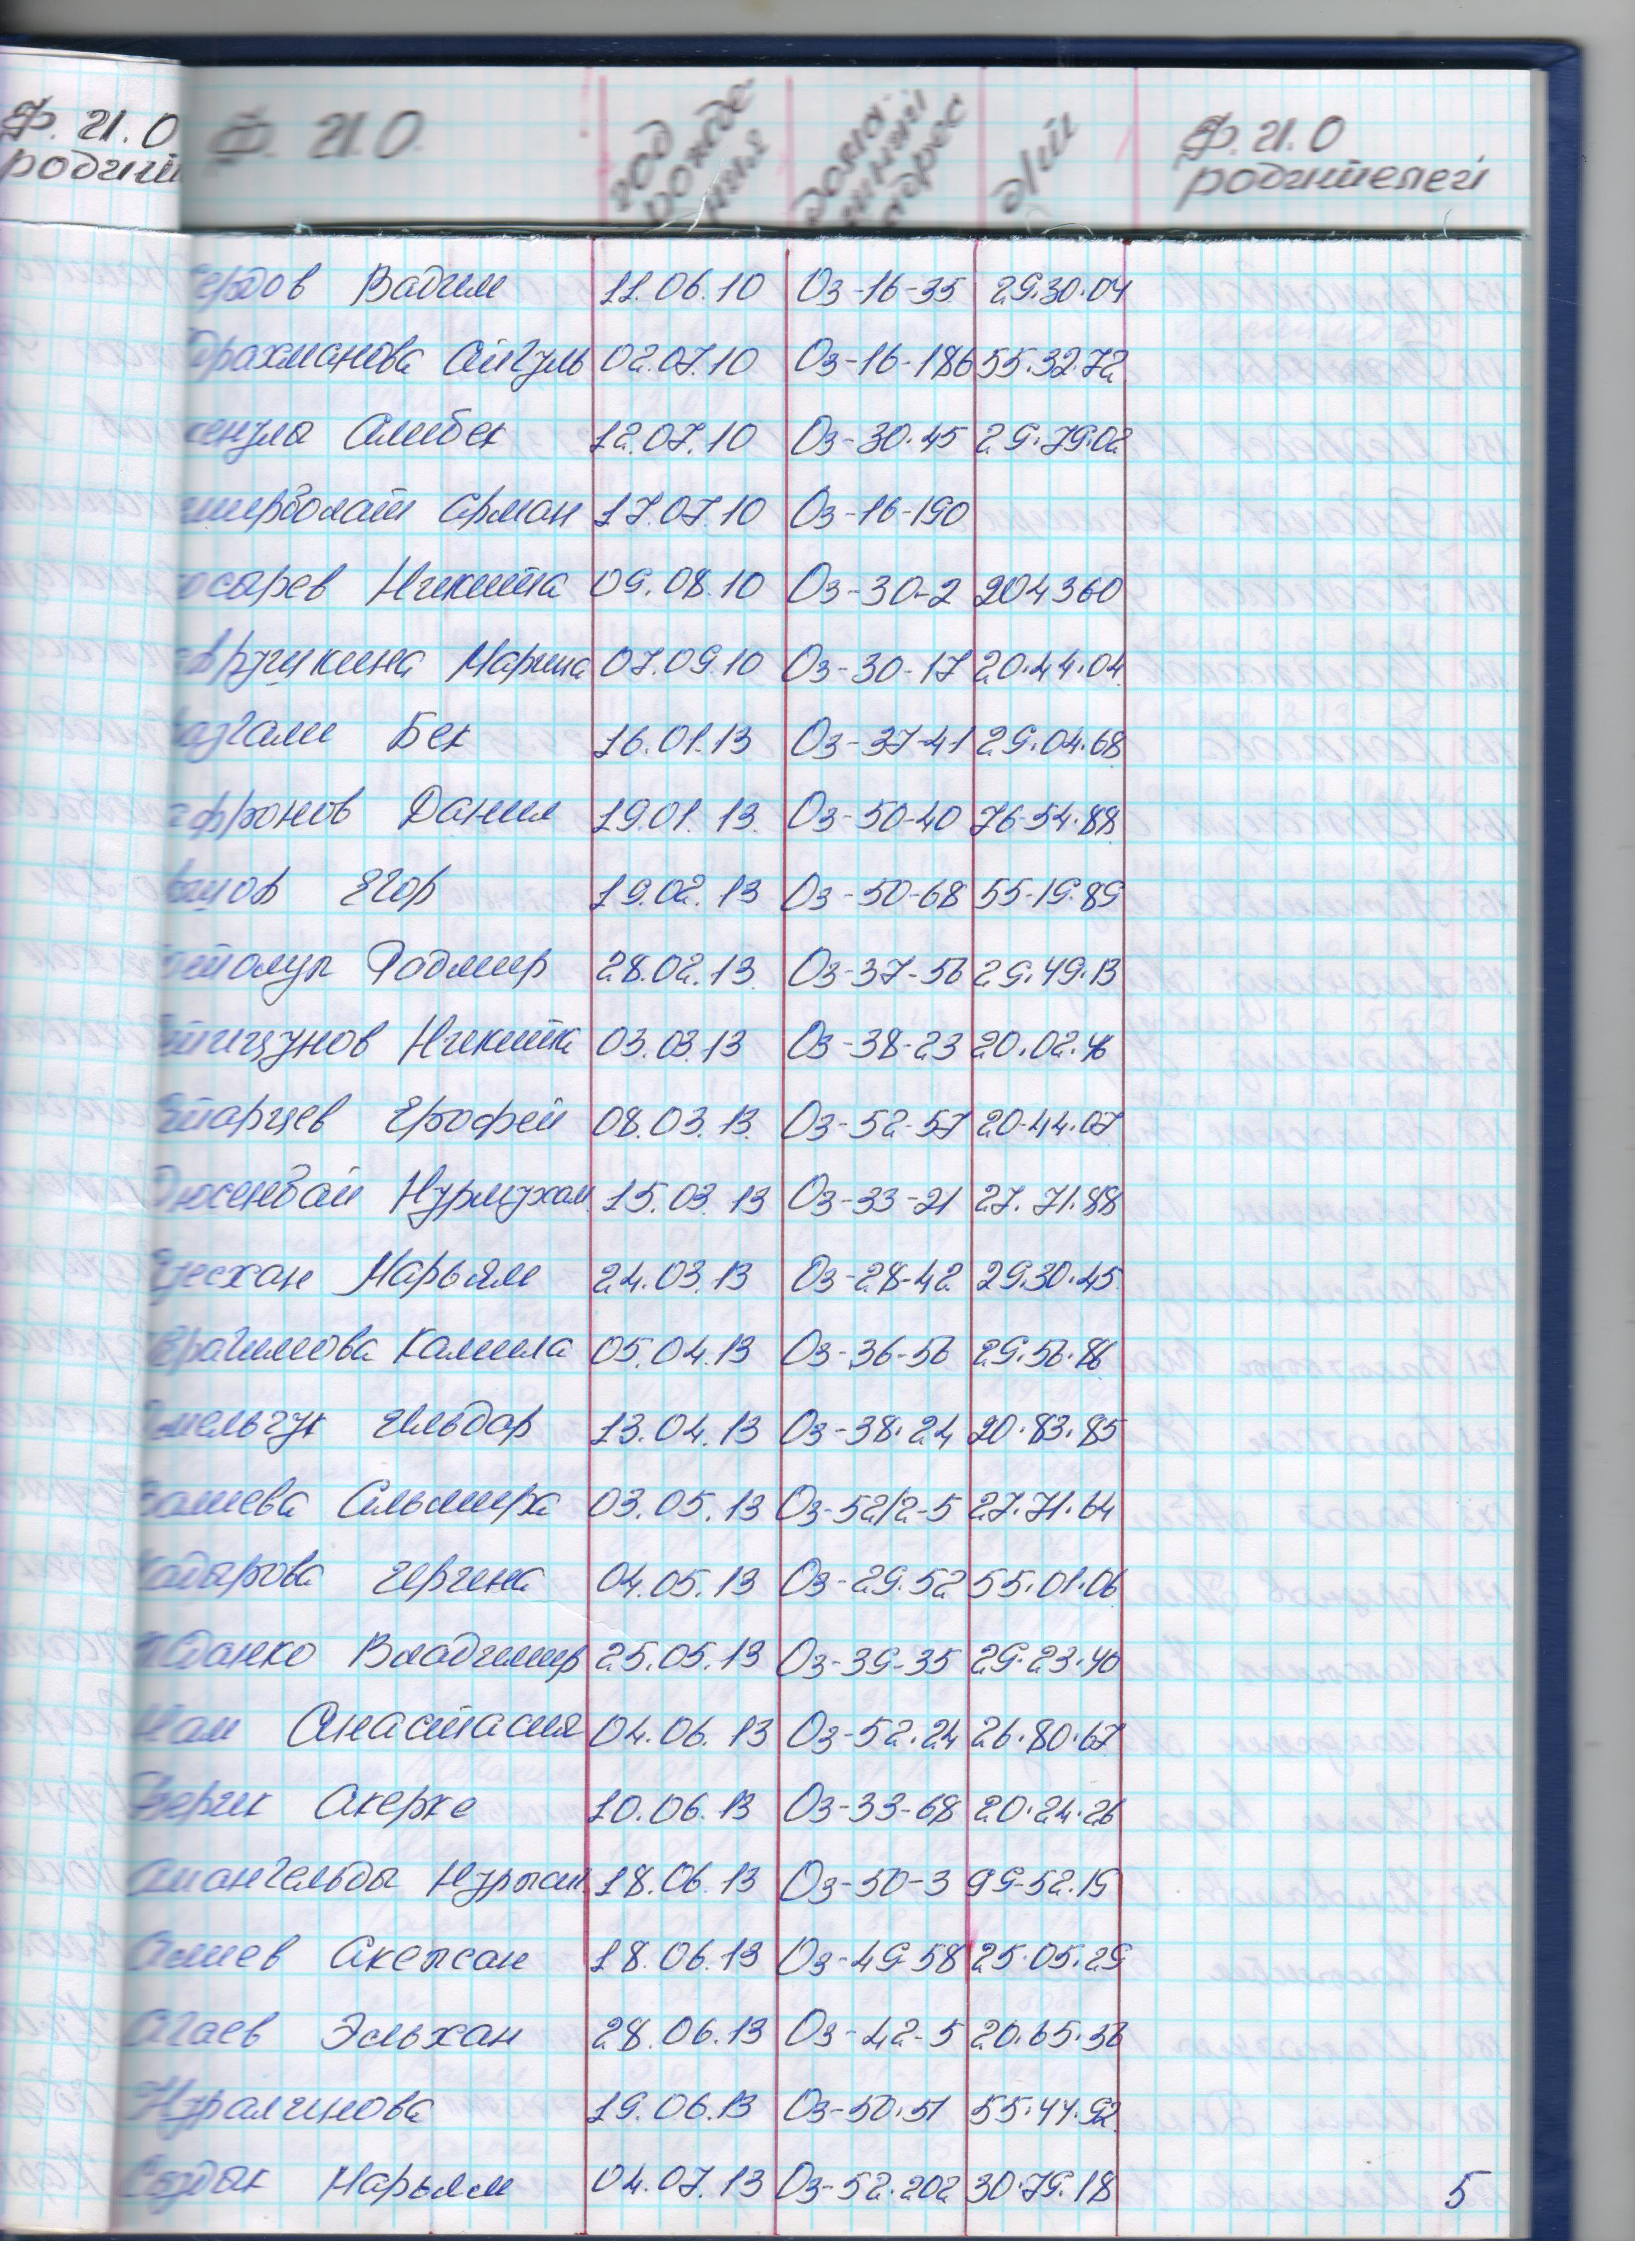 Ф.И.О
родит
Ф.И.О. год рождения домашний адрес д/т Ф.И.О
родителей
Вадим 11.06.10 Оз-16-35 29.30.04
драхманова Айгуль 02.07.10 Оз-16-186 55.32.72
Алибек 12.07.10 Оз-30.45 29.79.02
мирболат Арман 17.07.10 Оз-16-190
осырев Никита 09.08.10 Оз-30-2 204360
Марина 07.09.10 Оз-30-17 20.44.04
Бек 16.01.13 Оз-37-41 29.04.68
фронов Данил 19.01.13. Оз-50-40 76-54.88
Егор 19.02.13 Оз-50-68 55-19.89
Радмир 28.02.13. Оз-37-56 29.49.13
Никита 03.03.13 Оз-38-23 20.02.46
Старцев Ерофей 08.03.13. Оз-52-57 20-44.07
Дюсенбай Нурмухам 15.03.13 Оз-33-21 27.71.88
Марьям 24.03.13 Оз-28-42 29.30.45
брагимова Камила 05.04.13 Оз-36-56 29.56.86
мельчук Ильдар 13.04.13 Оз-38.24 20.83.85
Альмира 03.05.13 Оз-52/2-5 27.71.64
Кадырова 04.05.13 Оз-29.52 55.01.06
Жданко Владимир 25.05.13 Оз-39-35 29.23.40
Анастасия 04.06.13 Оз-52.24 26.80.67
Зерик Акерке 10.06.13 Оз-33-68 20.24.26
Амангельды 18.06.13 Оз-50-3 99-52.19
Алиев Акепсан 18.06.13 Оз-49-58 25.05.29
Агаев Эльхан 28.06.13 Оз-42-5 20.65.36
Нуралинова 19.06.13 Оз-50.51 55.44.92
Сыздык Марьям 04.07.13 Оз-52.202 30.79.18
5